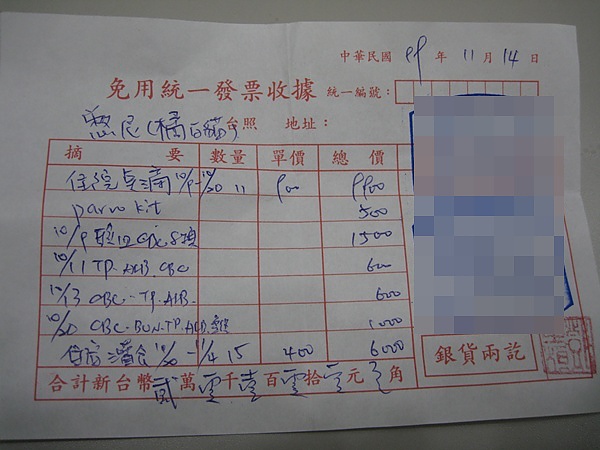 中華民國 99 年 11 月 14 日
免用統一發票收據 統一編號：
憨民(橘白貓) 台照 地址：
摘要 數量 單價 總價
住院點滴 10/9-10/20 11 900 9900
parvo kit 500
10/9 CBC 8項 1500
10/11 TP. ALB. CBC 600
10/13 CBC. TP. ALB. 600
10/20 CBC. BUN. TP. ALB. 1000
住院 10/20-11/4 15 400 6000
銀貨兩訖
合計新台幣 貳 萬 零 千 壹 百 零 拾 零 元 角